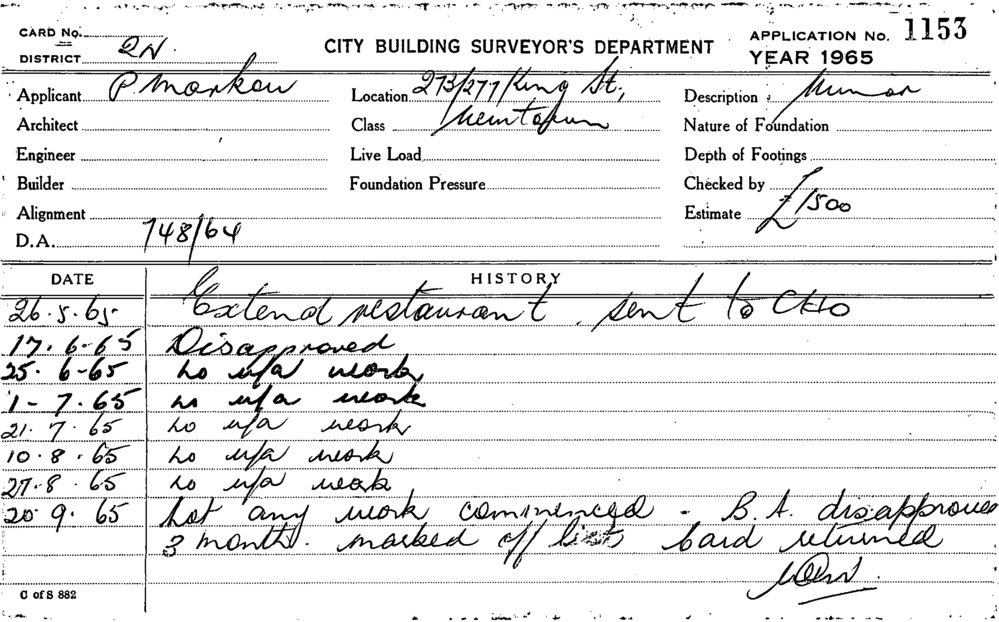 CARD No.
DISTRICT 2N.
CITY BUILDING SURVEYOR'S DEPARTMENT
APPLICATION No. 1153
YEAR 1965
Applicant P Markou Location 273/277 King St, Description Minor
Architect Class Newtown Nature of Foundation
Engineer Live Load Depth of Footings
Builder Foundation Pressure Checked by
Alignment Estimate £1500
D.A. 748/64
DATE HISTORY
26.5.65 Extend restaurant. sent to CHO
17.6.65 Disapproved
25.6-65 no u/a work
1-7.65 no u/a work
21.7.65 no u/a work
10.8.65 no u/a work
27.8.65 no u/a work
20.9.65 Not any work commenced - B.A. disapproved
3 months. marked off lists Card returned
C of S 882